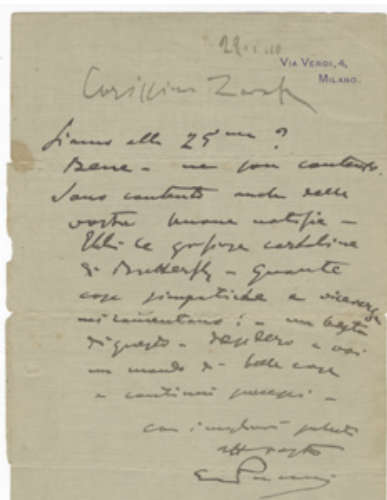 29.1.10
VIA VERDI, 4,
MILANO.
Carissimo
Siamo alla 25ma?
Bene - ne son contento.
Sono contento anche delle
vostre buone notizie -
Ebbi le graziose cartoline
di Butterfly - Quante
cose simpatiche e viceversa
mi
di questo - desidero a voi
un mondo di belle cose
e continui
con i migliori saluti
aff
Puccini